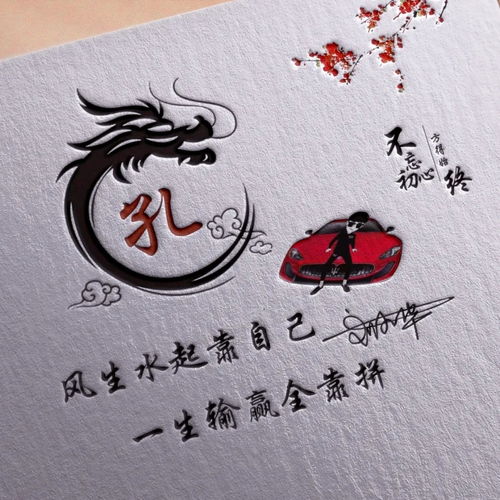 孔
不忘初心
方得始终
风生水起靠自己
一生输赢全靠拼